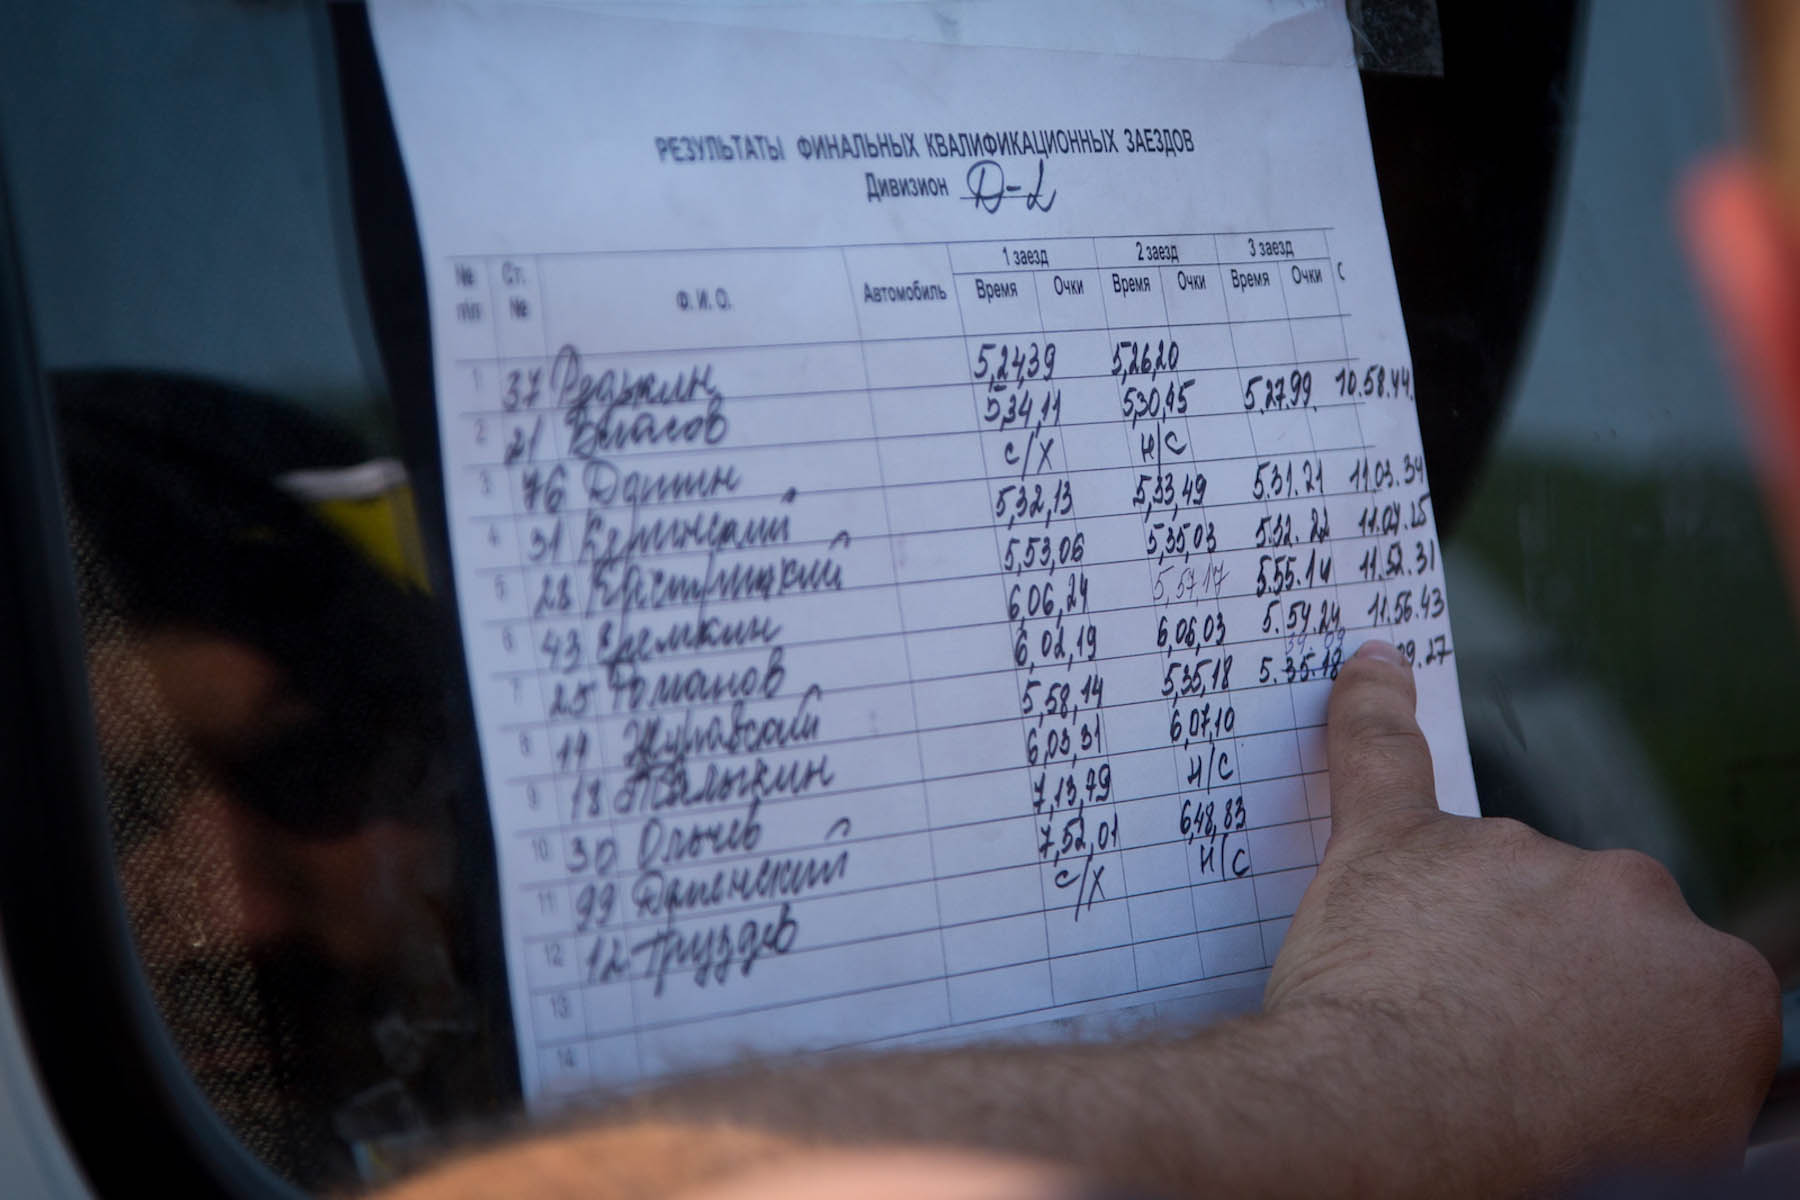 РЕЗУЛЬТАТЫ ФИНАЛЬНЫХ КВАЛИФИКАЦИОННЫХ ЗАЕЗДОВ
Дивизион Д-2
1 заезд 2 заезд 3 заезд
№ п/п Ст. № Ф. И. О. Автомобиль Время Очки Время Очки Время Очки С
1 37 Редькин 5,24,39 5,26,20
2 21 Власов 5,34,11 5,30,45 5.27.99. 10.58.44.
3 76 С/Х Н/С
4 31 5,32,13 5,33,49 5.31.21 11.03.34
5 28 5,53,06 5,35,03 5.32.22 11.07.25
6 43 Еремкин 6,06,24 5,57,17 5.55.14 11.52.31
7 25 Романов 6,02,19 6,06,03 5.54.24. 11.56.43
8 Журавский 5,58,14 5,35,18 5.35.18 09.27
9 18 Талыкин 6,03,31 6,07,10
10 30 Ольчев 7,13,79 Н/С
11 99 7,52,01 6,48,83
12 12 Груздев С/Х Н/С
13
14